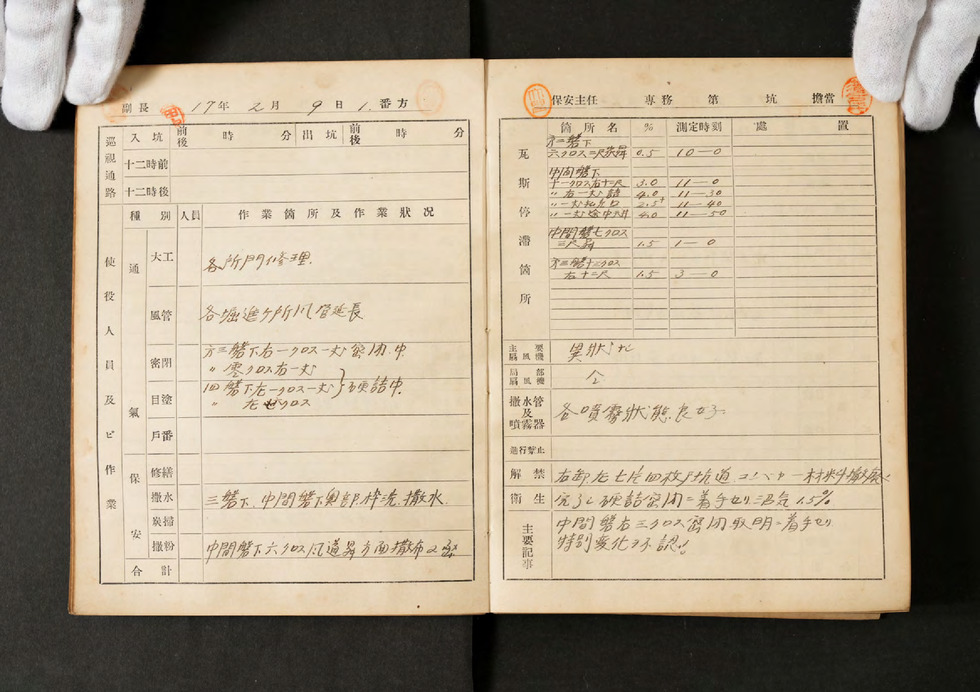 副長 17年 2月 9日 1.番方
巡視通路
入坑 前後 時 分 出坑 前後 時 分
十二時前
十二時後
使役人員及ビ作業
種別 人員 作業箇所及作業狀况
通氣
大工 各所門修理.
風管 各堀進ケ所風管延長
密閉 方三盤下右一クロス一丈密閉中.
〃 零クロス右一丈
目塗 四盤下左一クロス一丈 硬詰中.
〃 左七クロス
戶番
保安
修繕
撒水 三盤下、中間盤下奥部枠洗、撒水.
炭掃
撒粉 中間盤下六クロス風道昇方面撒布
合計
保安主任 専務 第 坑 擔當
瓦斯停滯箇所
箇所名 % 測定時刻 處置
方三盤下
六クロス二尺炭昇 0.5 10-0
中間盤下
十一クロス右十二尺 3.0 11-0
〃 右一丈詰 4.0 11-30
〃 一丈払
 2.5 11-40
〃 一丈途中六片 4.0 11-50
中間盤七クロス
三尺昇 1.5 1-0
方三盤十二クロス
右十二尺 1.5 3-0
主要扇風機 異狀ナシ
局部扇風機 仝
撒水管及噴霧器 各噴霧狀態良好
進行禁止
解禁 右卸左七片四枚門坑道コンベヤー材料撤
衛生 完了し硬詰密閉ニ着手せり 沼気1.5%
主要記事
中間盤右三クロス密閉取明ニ着手せり
特別変化不認